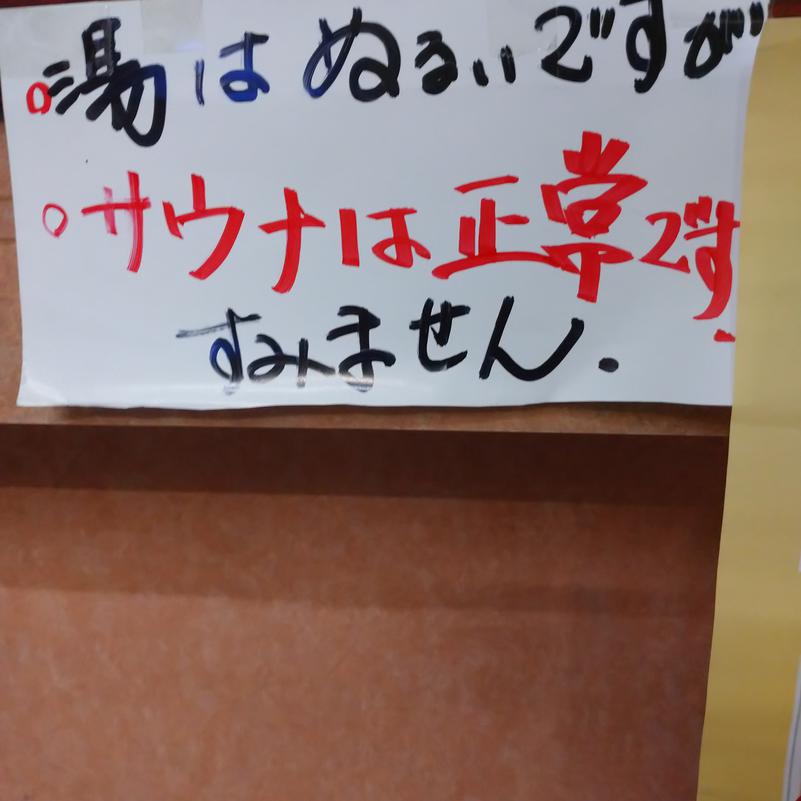 ○湯はぬるいですが
○サウナは正常です.
すみません.